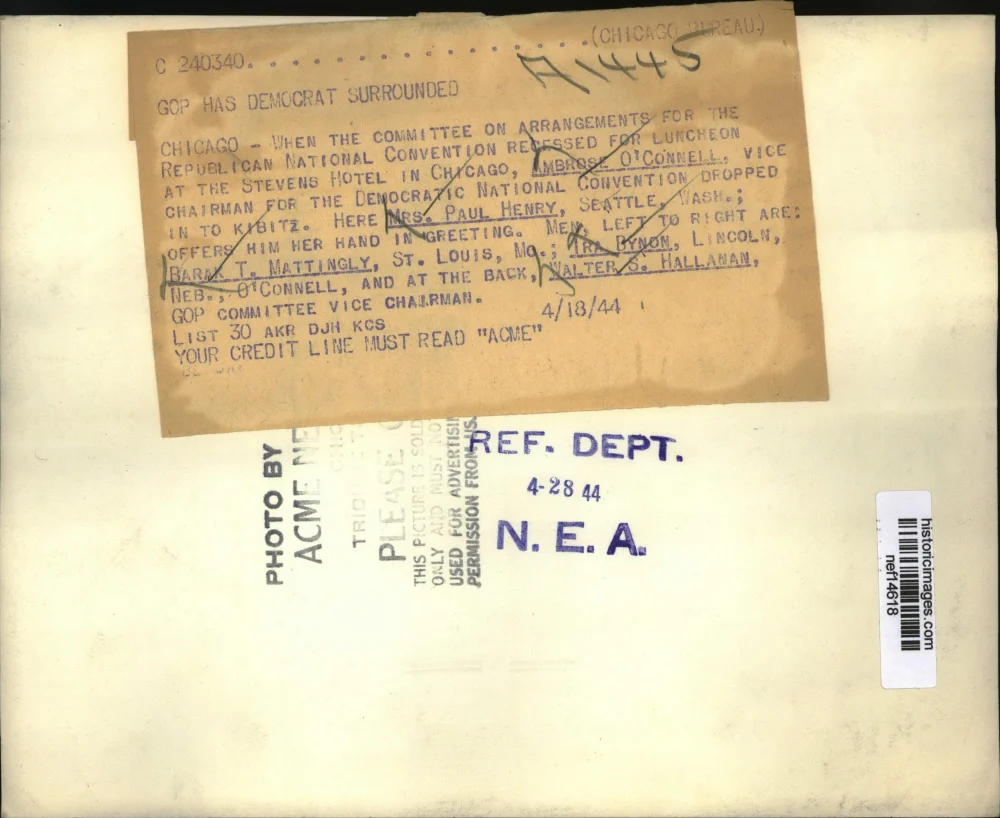 C 240340. . . . . . . . . . . . . . . . . . .(CHICAGO BUREAU.)
A1445
GOP HAS DEMOCRAT SURROUNDED
CHICAGO - WHEN THE COMMITTEE ON ARRANGEMENTS FOR THE
REPUBLICAN NATIONAL CONVENTION RECESSED FOR LUNCHEON
AT THE STEVENS HOTEL IN CHICAGO, AMBROSE O'CONNELL, VICE
CHAIRMAN FOR THE DEMOCRATIC NATIONAL CONVENTION DROPPED
IN TO KIBITZ. HERE MRS. PAUL HENRY, SEATTLE, WASH.;
OFFERS HIM HER HAND IN GREETING. MEN, LEFT TO RIGHT ARE:
BARAK T. MATTINGLY, ST. LOUIS, MO.; IRA DYNON, LINCOLN,
NEB., O'CONNELL, AND AT THE BACK, WALTER S. HALLANAN,
GOP COMMITTEE VICE CHAIRMAN.
LIST 30 AKR DJH KCS 4/18/44
YOUR CREDIT LINE MUST READ "ACME"
PHOTO BY
ACME NE
TRI
PLEASE
THIS PICTURE IS SOLD
ONLY AND MUST NO
USED FOR ADVERTISI
PERMISSION FROM US.
REF. DEPT.
4-28 44
N. E. A.
historicimages.com
nef14618